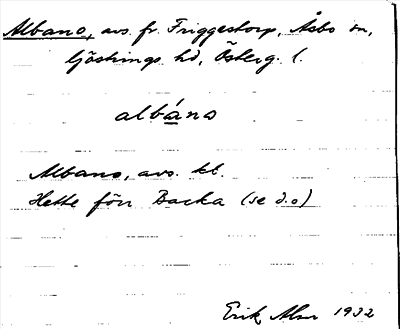 Albano, avs. fr. Friggestorp, Åsbo sn,
Göstrings hd, Österg. l.
albánο
Albano, avs. kb.
Hette förr Backa (se d.o)
Erik Abr 1932